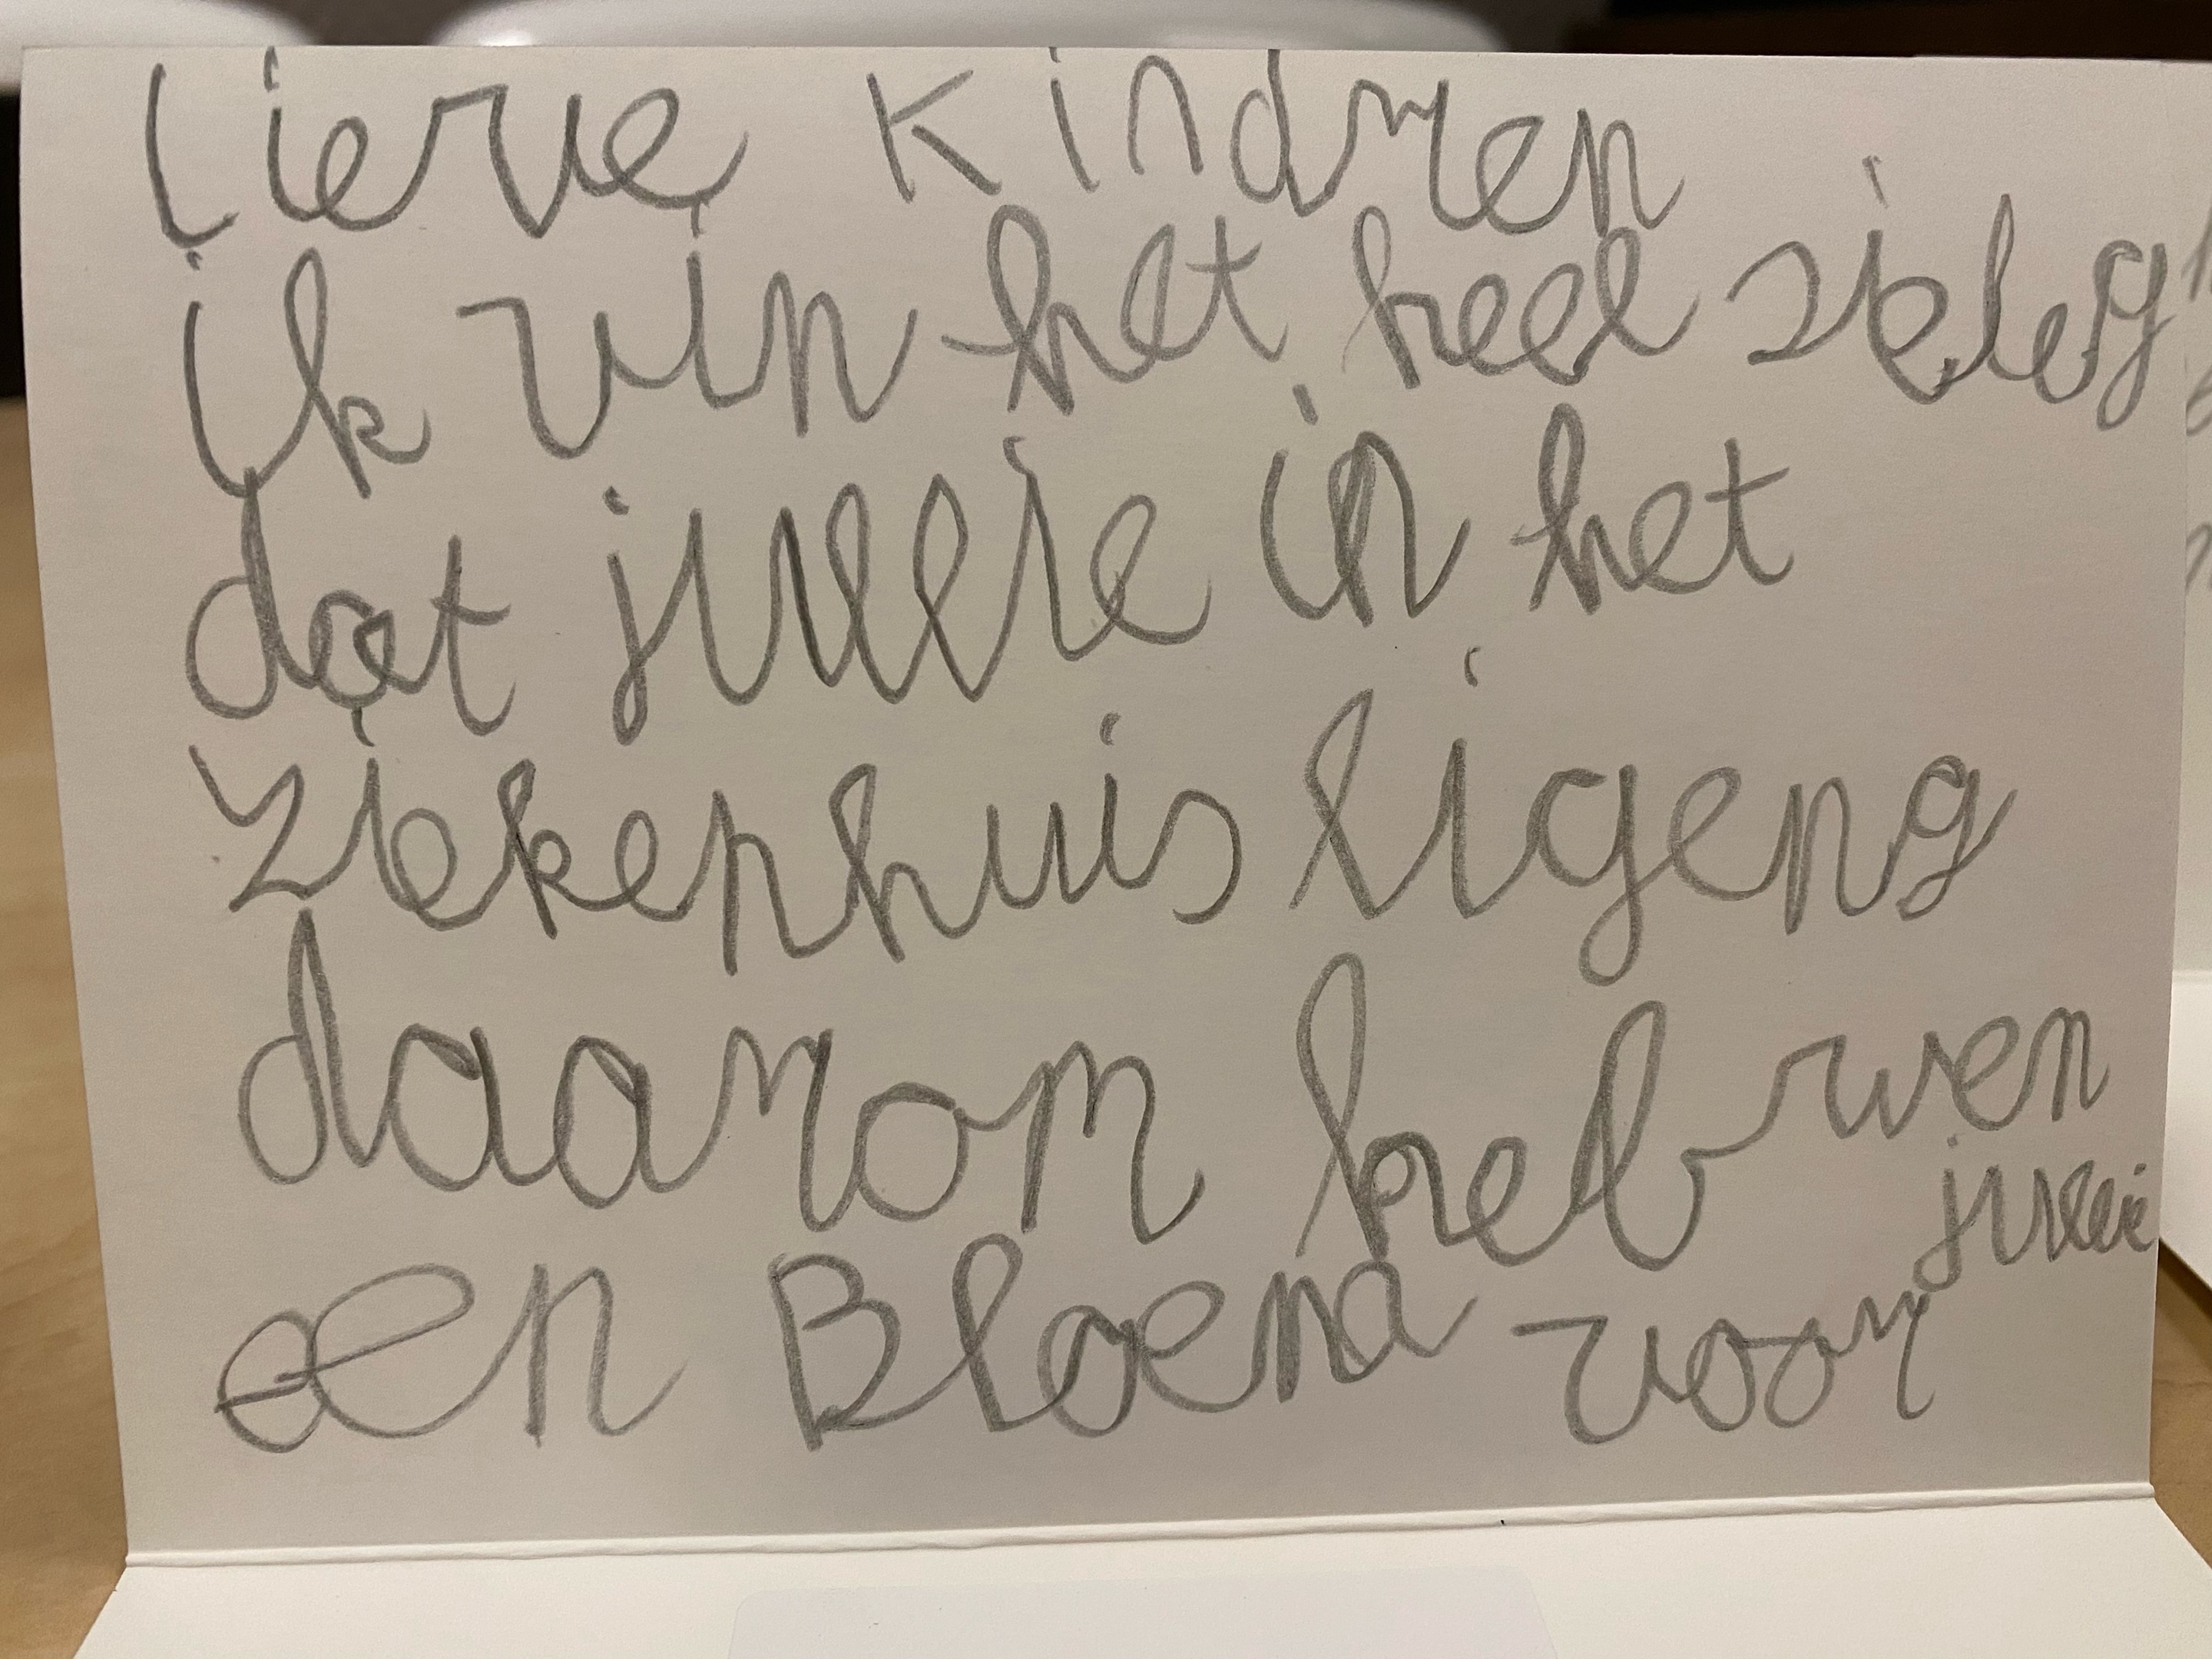 lieve kindren
ik vin het heel zieleg
dat jullie in het
ziekenhuis ligeng
daarom heb wen
een Bloema voor jullie